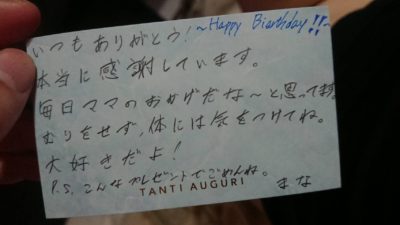 いつもありがとう! ~Happy Biarthday!!~
本当に感謝しています。
毎日ママのおかげだな~と思ってます
むりをせず、体には気をつけてね。
大好きだよ!
P.S. こんなプレゼントでごめんね。
TANTI AUGURI まな